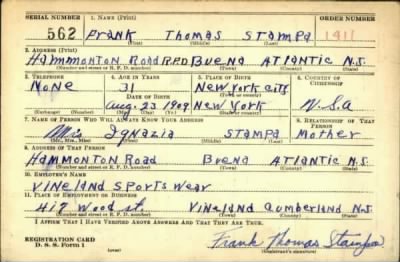 SERIAL NUMBER 1. NAME (Print) ORDER NUMBER
562 Frank Thomas Stampa 1911
(First) (Middle) (Last)
2. ADDRESS (Print)
Hammonton Road R.F.D. Buena Atlantic N.J.
(Number and street or R. F. D. number) (Town) (County) (State)
3. TELEPHONE 4. AGE IN YEARS 5. PLACE OF BIRTH 6. COUNTRY OF CITIZENSHIP
None 31 New York City
DATE OF BIRTH (Town or county)
Aug. 23 1909 New York U.S.a
(Exchange) (Number) (Mo.) (Day) (Yr.) (State or country)
7. NAME OF PERSON WHO WILL ALWAYS KNOW YOUR ADDRESS 8. RELATIONSHIP OF THAT PERSON
Mrs Ignazia Stampa Mother
(Mr., Mrs., Miss) (First) (Middle) (Last)
9. ADDRESS OF THAT PERSON
Hammonton Road Buena Atlantic N.J.
(Number and street or R. F. D. number) (Town) (County) (State)
10. EMPLOYER'S NAME
Vineland Sports Wear
11. PLACE OF EMPLOYMENT OR BUSINESS
417 Wood st. Vineland Cumberland N.J.
(Number and street or R. F. D. number) (Town) (County) (State)
I AFFIRM THAT I HAVE VERIFIED ABOVE ANSWERS AND THAT THEY ARE TRUE.
REGISTRATION CARD
D. S. S. Form 1 Frank Thomas Stampa
(Registrant's signature)